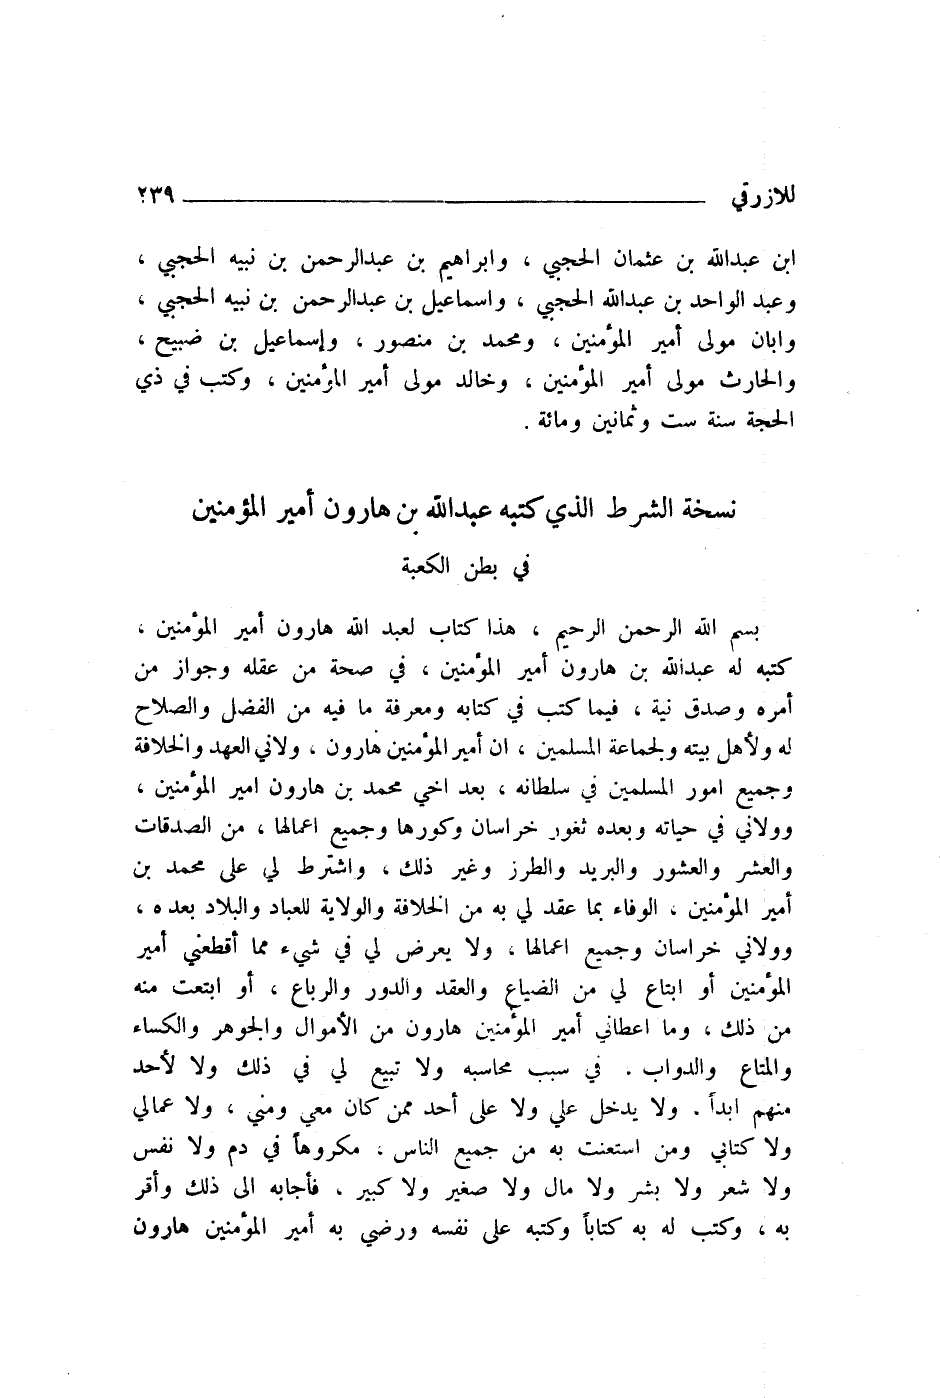 للازرقي ٢٣٩
ابن عبدالله بن عثمان الحجبي ، وابراهيم بن عبدالرحمن بن نبيه الحجبي ،
وعبد الواحد بن عبدالله الحجبي ، واسماعيل بن عبدالرحمن بن نبيه الحجبي ،
وابان مولى أمير المؤمنين ، ومحمد بن منصور ، وإسماعيل بن ضبيح ،
والحارث مولى أمير المؤمنين ، وخالد مولى أمير المؤمنين ، وكتب في ذي
الحجة سنة ست وثمانين ومائة .
نسخة الشرط الذي كتبه عبدالله بن هارون أمير المؤمنين
في بطن الكعبة
بسم الله الرحمن الرحيم ، هذا كتاب لعبد الله هارون أمير المؤمنين ،
كتبه له عبدالله بن هارون أمير المؤمنين ، في صحة من عقله وجواز من
أمره وصدق نية ، فيما كتب في كتابه ومعرفة ما فيه من الفضل والصلاح
له ولأهل بيته ولجماعة المسلمين ، ان أمير المؤمنين هارون ، ولاني العهد والخلافة
وجميع امور المسلمين في سلطانه ، بعد اخي محمد بن هارون امير المؤمنين ،
وولاني في حياته وبعده ثغور خراسان وكورها وجميع اعمالها ، من الصدقات
والعشر والعشور والبريد والطرز وغير ذلك ، واشترط لي على محمد بن
أمير المؤمنين ، الوفاء بما عقد لي به من الخلافة والولاية للعباد والبلاد بعده ،
وولاني خراسان وجميع اعمالها ، ولا يعرض لي في شيء مما أقطعني أمير
المؤمنين أو ابتاع لي من الضياع والعقد والدور والرباع ، أو ابتعت منه
من ذلك ، وما اعطاني أمير المؤمنين هارون من الأموال والجوهر والكساء
والمتاع والدواب . في سبب محاسبه ولا تبيع لي في ذلك ولا لأحد
منهم ابداً . ولا يدخل علي ولا على أحد ممن كان معي ومني ، ولا عمالي
ولا كتابي ومن استعنت به من جميع الناس ، مكروهاً في دم ولا نفس
ولا شعر ولا بشر ولا مال ولا صغير ولا كبير ، فأجابه الى ذلك وأقر
به ، وكتب له به كتاباً وكتبه على نفسه ورضي به أمير المؤمنين هارون